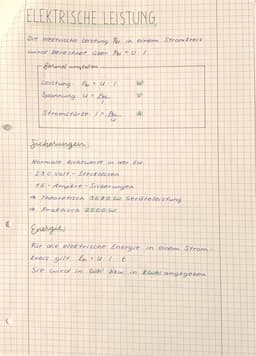 ELEKTRISCHE LEISTUNG
Die elektrische Leistung Pel in einem Stromkreis
wird berechnet über Pel = U · I.
Formel umstellen
Leistung: Pel = U · I W
Spannung: U = Pel / I V
Stromstärke: I = Pel / U A
Sicherungen
Normale Richtwerte in der EU:
- 230 Volt - Steckdosen
- 16 - Ampère - Sicherungen
→ Theoretisch 3680 W Geräteleistung
→ Praktisch 2500 W
Energie
Für die elektrische Energie in einem Strom-
kreis gilt Eel = U · I · t
Sie wird in Wh bzw. in kWh angegeben